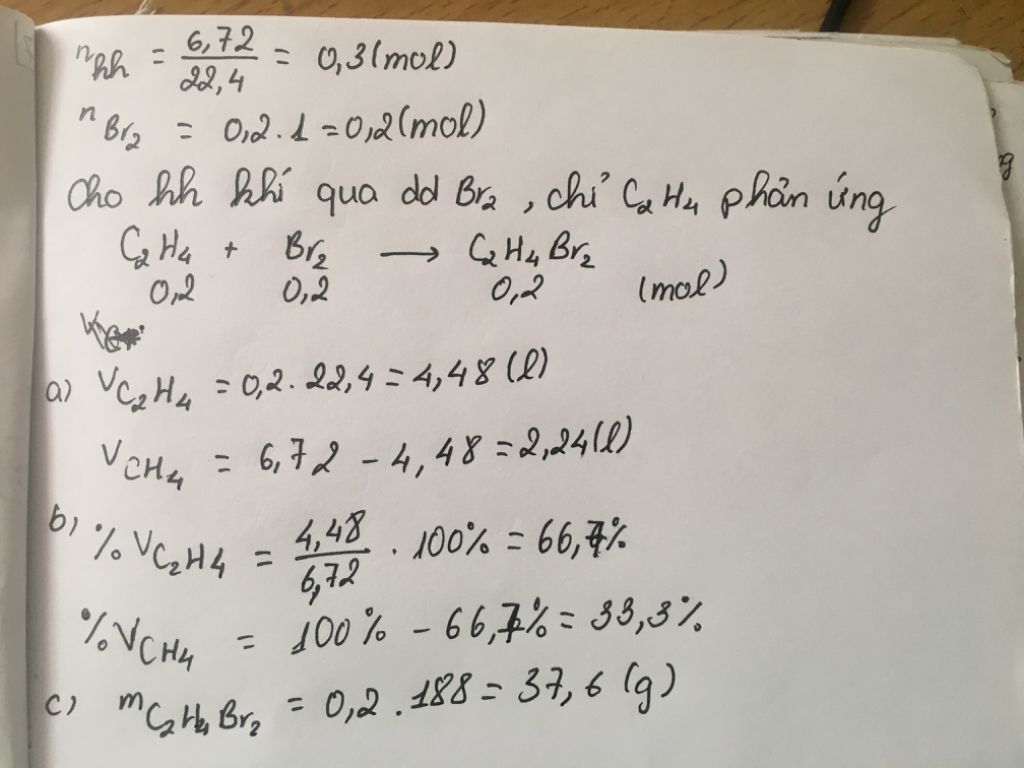 nhh = 6,72/22,4 = 0,3 (mol)
nBr₂ = 0,2 . 1 = 0,2 (mol)
Cho hh khí qua dd Br₂ , chỉ C₂H₄ phản ứng
C₂H₄ + Br₂ → C₂H₄Br₂
0,2 0,2 0,2 (mol)
a) VC₂H₄ = 0,2 . 22,4 = 4,48 (l)
VCH₄ = 6,72 - 4,48 = 2,24 (l)
b) %VC₂H₄ = 4,48/6,72 . 100% = 66,7%
%VCH₄ = 100% - 66,7% = 33,3%
c) mC₂H₄Br₂ = 0,2 . 188 = 37,6 (g)